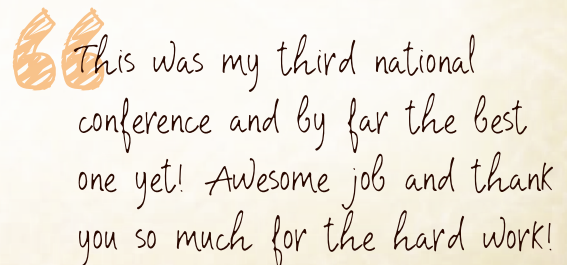 “This was my third national
conference and by far the best
one yet! Awesome job and thank
you so much for the hard work!